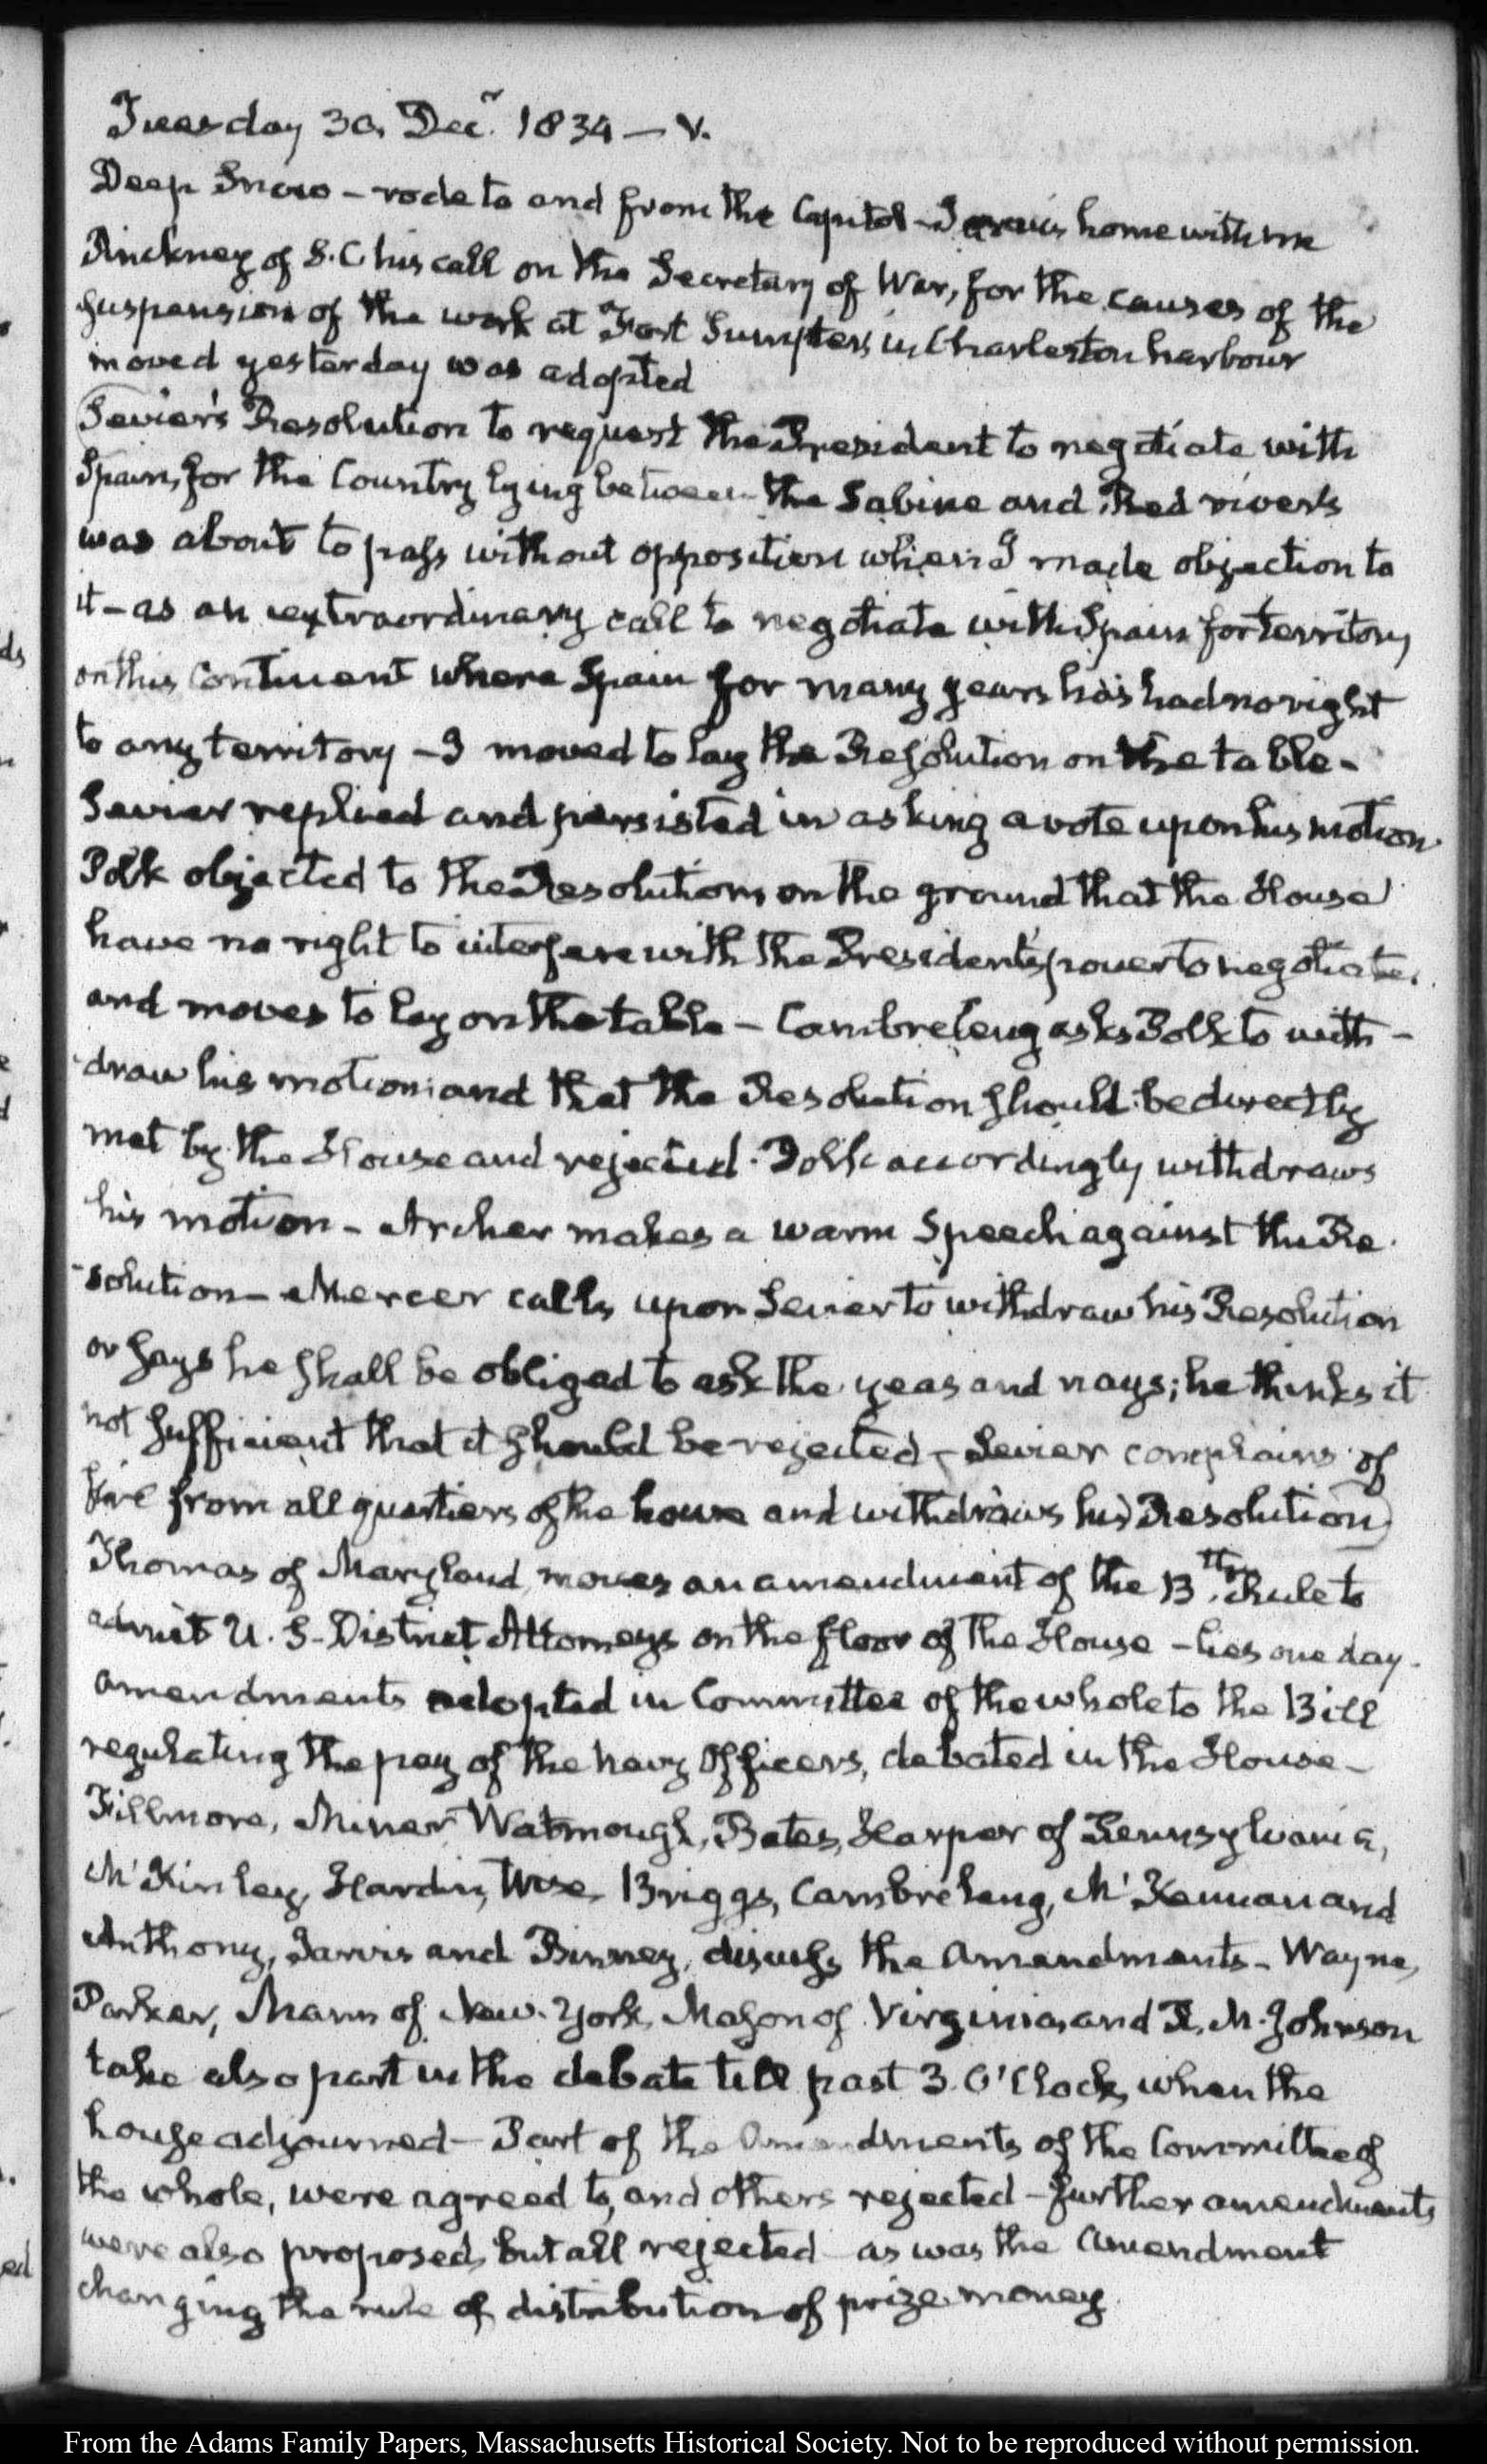 Tuesday 30. Decr. 1834 — V.
Deep Snow – rode to and from the Capitol – Jarvis home with me
Pinckney of S. C. his call on the Secretary of War, for the causes of the
suspension of the work at Fort Sumpter, in Charleston harbour
moved yesterday was adopted
Sevier's Resolution to request the President to negotiate with
Spain, for the Country lying between the Sabine and Red rivers
was about to pass without opposition when I made objection to
it – as an extraordinary call to negotiate with Spain for territory
on this Continent where Spain for many years has had no right
to any territory – I moved to lay the Resolution on the table –
Sevier replied and persisted in asking a vote upon his motion.
Polk objected to the Resolution, on the ground that the House
have no right to interfere with the President's power to negotiate.
and moves to lay on the table – Cambreleng asks Polk to with-
draw his motion and that the Resolution should be directly
met by the House and rejected. Polk accordingly withdraws
his motion – Archer makes a warm Speech against the Re-
-solution – Mercer calls upon Sevier to withdraw his Resolution
or says he shall be obliged to ask the yeas and nays; he thinks it
not sufficient that it should be rejected – Sevier complains of
fire from all quarters of the house and withdraws his Resolution
Thomas of Maryland, moves an amendment of the 13th. Rule to
admit U. S. District Attorneys on the floor of the House – lies one day.
Amendments adopted in Committee of the whole to the Bill
regulating the pay of the Navy Officers, debated in the House –
Fillmore, Miner Watmough, Bates, Harper of Pennsylvania,
McKinley, Hardin, Wise, Briggs, Cambreleng, McKennan and
Anthony, Jarvis and Binney, discuss the Amendments – Wayne,
Parker, Mann of New-York, Mason of Virginia, and R. M. Johnson
take also part in the debate till past 3. O'Clock, when the
house adjourned – Part of the Amendments of the Committee of
the whole, were agreed to, and others rejected – further amendments
were also proposed, but all rejected as was the Amendment
changing the rule of distribution of prize-money
From the Adams Family Papers, Massachusetts Historical Society. Not to be reproduced without permission.